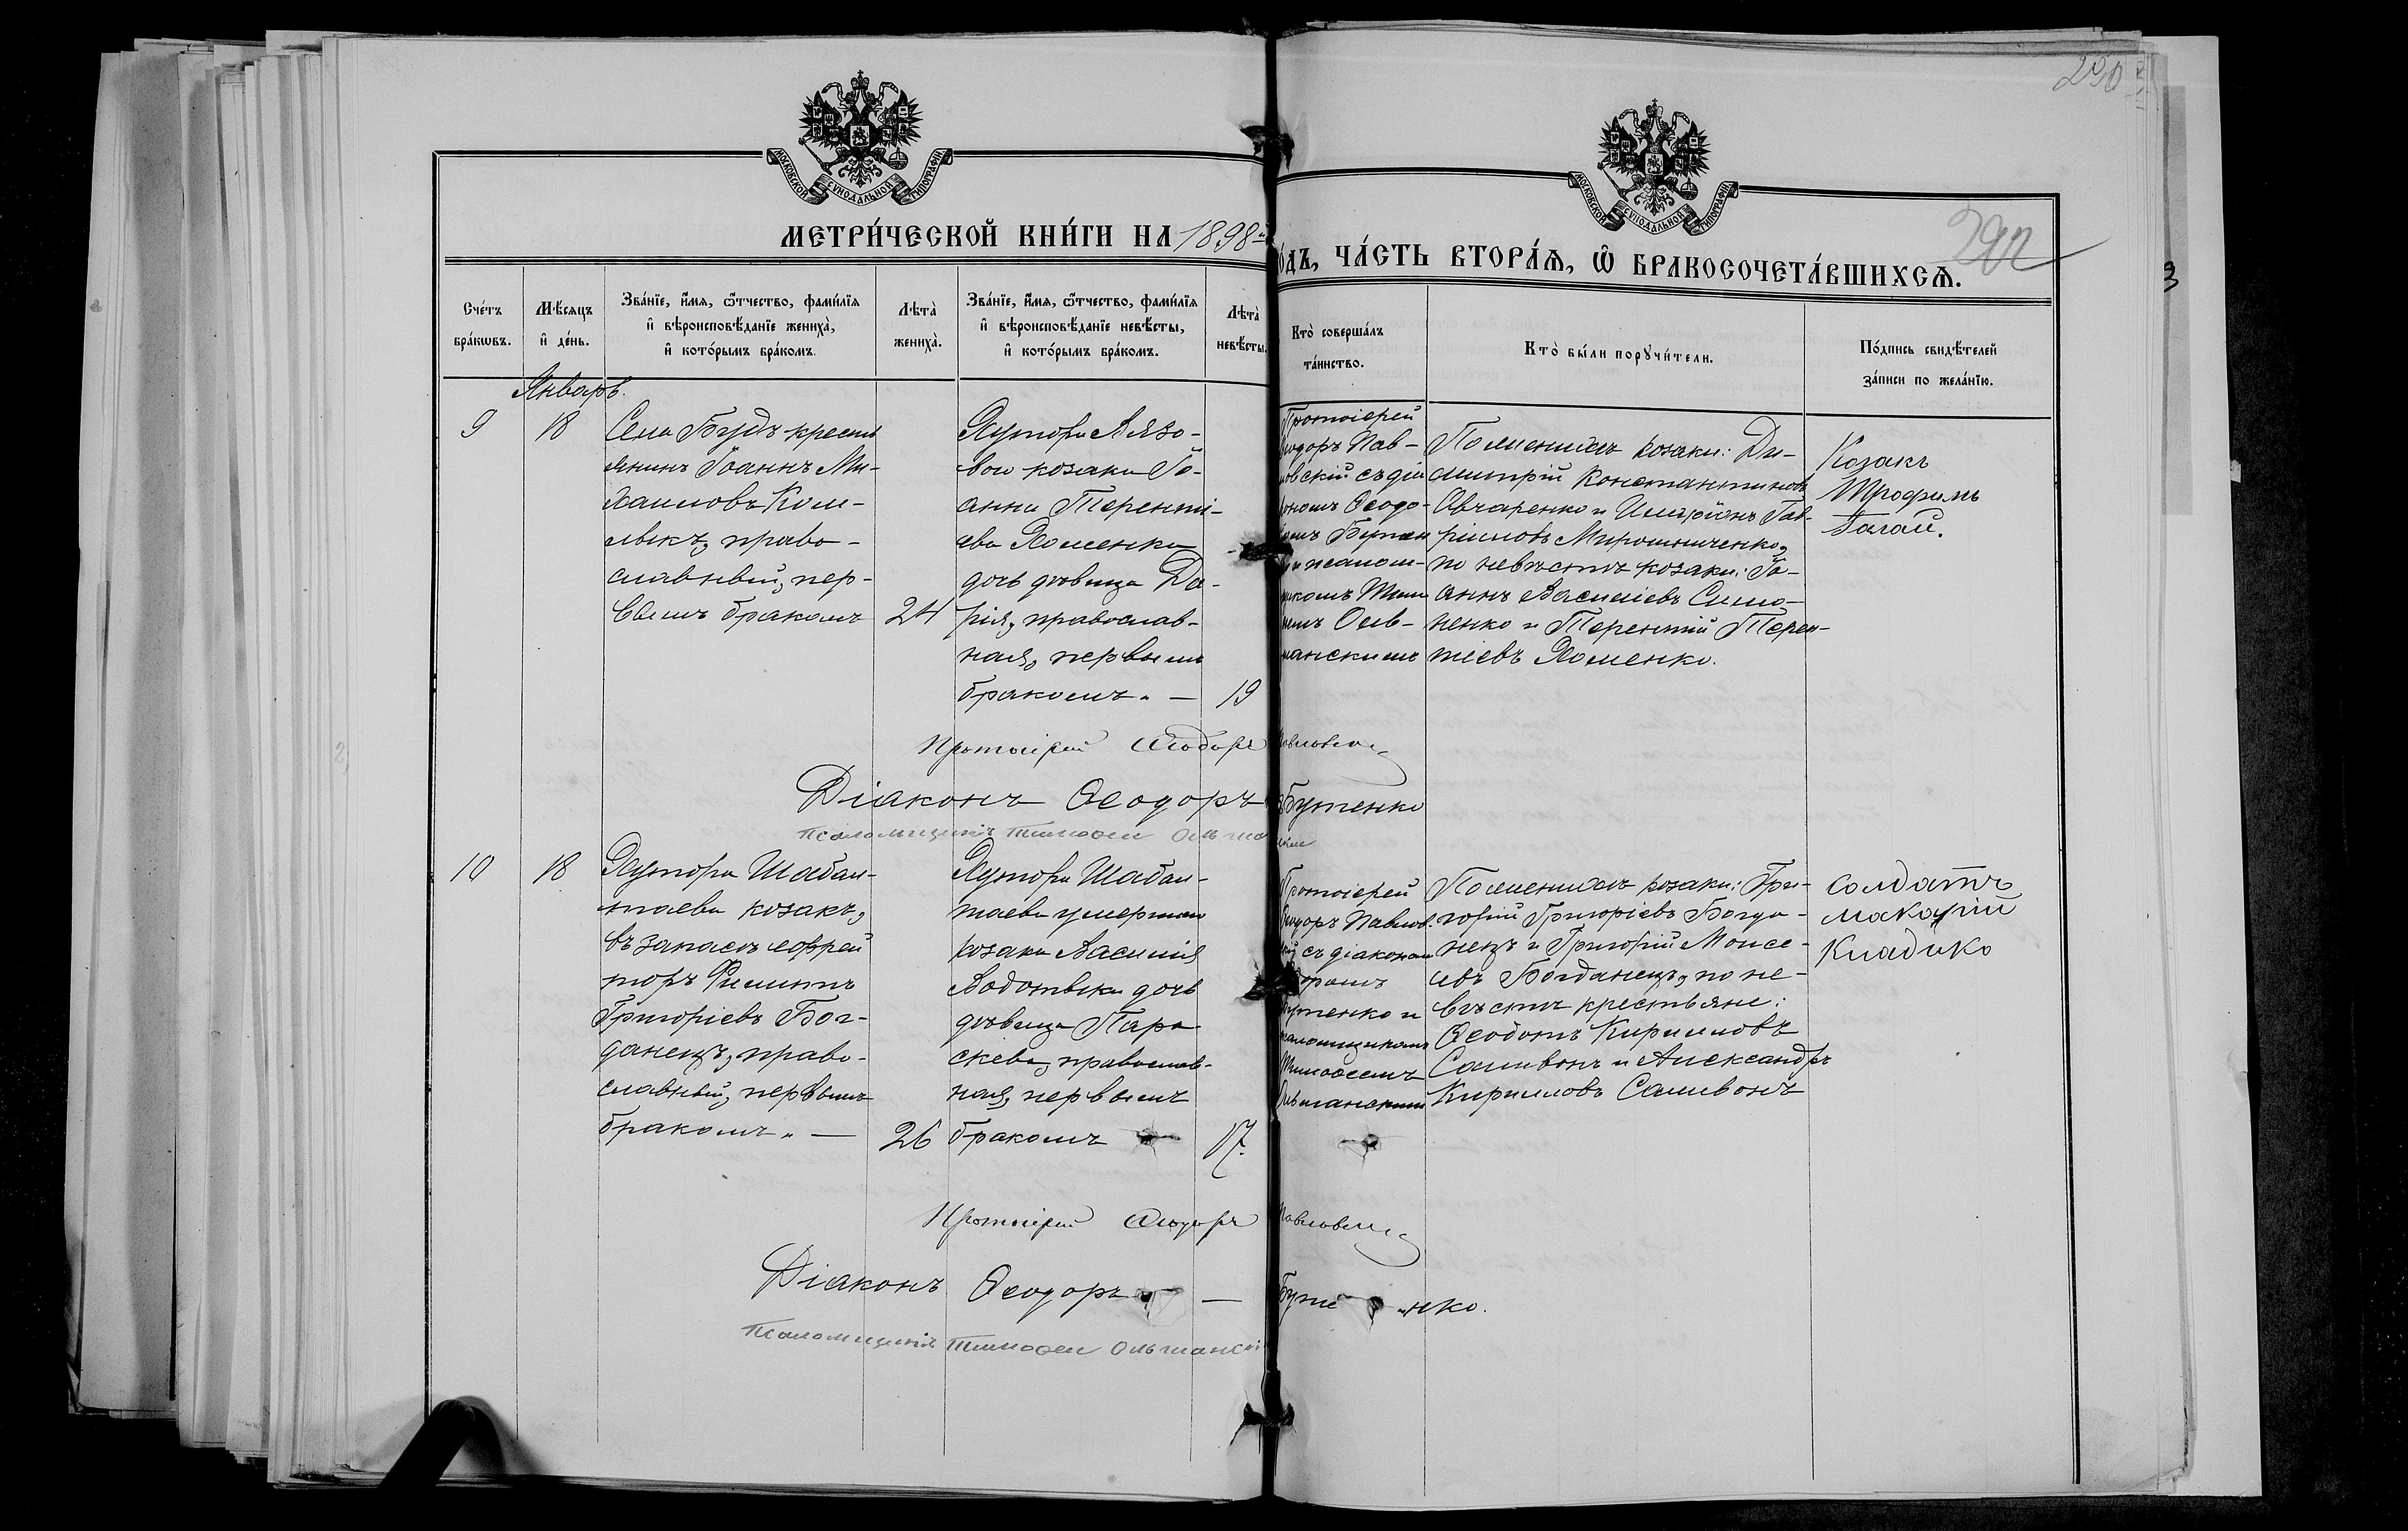 290
МОСКОВСКОЙ СУНОДАЛЬНОЙ ТИПОГРАФІИ
МОСКОВСКОЙ СУНОДАЛЬНОЙ ТИПОГРАФІИ
МЕТРИ́ЧЕСКОЙ КНИ́ГИ НА 1898
о́дъ, ЧА́СТЬ ВТОРА́Я, Ѡ БРАКОСОЧЕТА́ВШИХСЯ.
Сче́тъ бра́кѡвъ.
Мѣ́сяцъ и҆ де́нь.
Зва́нїе, и҆́мя, ѻ҆́тчество, фами́лїя и҆ вѣроисповѣ́данїе жениха̀, и҆ кото́рымъ бра́комъ.
Лѣта̀ жениха̀.
Зва́нїе, и҆́мя, ѻ҆́тчество, фами́лїя и҆ вѣроисповѣ́данїе невѣ́сты, и҆ кото́рымъ бра́комъ.
Лѣта̀ невѣ́сты.
Кто̀ соверша́лъ та́инство.
Кто̀ бы́ли порꙋчи́тели.
По́дпись свидѣ́телей за́писи по жела́нїю.
Январь.
9
18
Села Будъ кресть
янинъ Іоаннъ Ми-
хаиловъ Кол-
право-
славный, пер-
вымъ бракомъ
24
Хутора Вязо-
вои козака Іо-
анна Теренті-
ева Хоменка
дочь дѣвица Да-
рія, православ-
ная, первымъ
бракомъ. —
19
Протоіерей
еодоръ Пав-
овскій съ дія
кономъ Ѳеодо-
омъ Бутен
и псалом-
икомъ Тим
емъ Оль-
шанскимъ
По женихѣ козаки: Ди-
митрій Константиновъ
Овчаренко и Иларіонъ Гав-
ріиловъ Мирошниченко,
по невѣстѣ козаки: Іо-
аннъ Василіевъ Симо-
ненко и Терентій Терен-
тіевъ Хоменко.
Козакъ
Трофимъ
Галай.
Протоіерей Ѳеодоръ Павловскі
Діаконъ Ѳеодоръ Бутенко
Псаломщикъ Тимофеи Ольшанскии
10
18
Хутора Шабал-
таева козакъ,
въ запасѣ ефрей
торъ Филиппъ
Григоріевъ Бог-
данецъ, право-
славный, первымъ
бракомъ. —
26
Хутора Шабал-
таева умершаго
козака Василія
дочь
дѣвица Пара-
скева, православ-
ная, первымъ
бракомъ
17.
Протоіерей
Ѳеодоръ Павлов.
ій съ діакономъ
доромъ
Бутенко и
саломщикомъ
Тимофеемъ
Ольшанскимъ
По женихѣ козаки: Гри-
горій Григоріевъ Богда-
нецъ и Григорій Моисе-
евъ Богданецъ, по не-
вѣстѣ крестьяне:
Ѳеодотъ Кирилловъ
Саливонъ и Александръ
Кирилловъ Саливонъ
Солдатъ
Макарій
Кладико
Протоіерей Ѳеодоръ Павловскі
Діаконъ Ѳеодоръ — Бутенко.
Псаломщикъ Тимофеи Ольшанскі